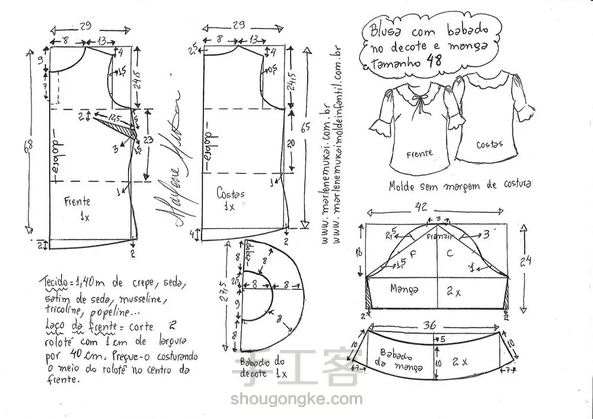 Blusa com babado
no decote e manga
tamanho 48
Frente
Costas
Molde sem margem de costura
29
8
13
4
9
7
1,5
24,5
68
2
12,5
3
23
dobra
1
Frente
1x
2
2
Marlene Mukai
29
8
13
4
1,5
24,5
65
20
dobra
1
Costas
1x
4
2
www.marlenemukai.com.br
www.marlenemukaimoldeinfantil.com.br
42
3
2,5
Franzir
3
F
C
1,5
1
24
Manga
2x
2
2
36
5
10
10
10
7
7
Babado
da manga
2x
27,5
8
8
8
9
8
Babado do
decote 1x
Tecido=1,40m de crepe, seda,
satim de seda, musseline,
tricoline, popeline...
Laço da frente= corte 2
rolotê com 1cm de largura
por 40cm. Pregue-o costurando
o meio do rolotê no centro da
frente.
手工客
shougongke.com